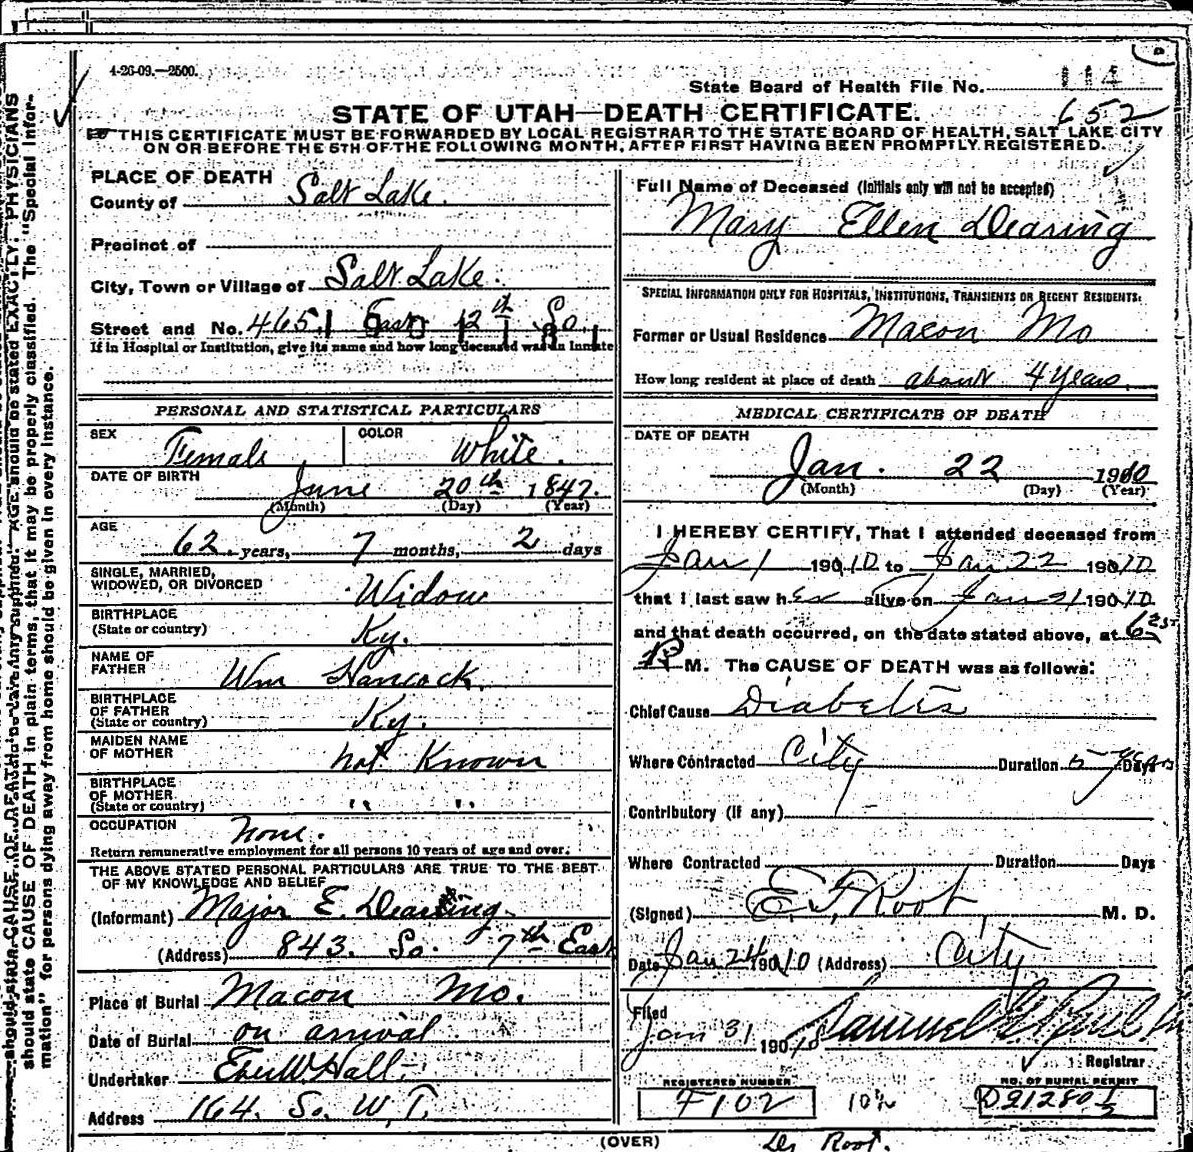 4-26-09.—2500.
State Board of Health File No. 114
652
STATE OF UTAH—DEATH CERTIFICATE.
THIS CERTIFICATE MUST BE FORWARDED BY LOCAL REGISTRAR TO THE STATE BOARD OF HEALTH, SALT LAKE CITY
ON OR BEFORE THE 5TH OF THE FOLLOWING MONTH, AFTER FIRST HAVING BEEN PROMPLY REGISTERED.
PLACE OF DEATH
County of Salt Lake.
Precinct of
City, Town or Village of Salt Lake.
Street and No. 465 East 12th So.
If in Hospital or Institution, give its name and how long deceased was in Inmate
PERSONAL AND STATISTICAL PARTICULARS
SEX Female
COLOR White.
DATE OF BIRTH June 20th 1847.
(Month) (Day) (Year)
AGE 62 years, 7 months, 2 days
SINGLE, MARRIED,
WIDOWED, OR DIVORCED Widow
BIRTHPLACE
(State or country) Ky.
NAME OF
FATHER Wm Hancock.
BIRTHPLACE
OF FATHER
(State or country) Ky.
MAIDEN NAME
OF MOTHER not Known
BIRTHPLACE
OF MOTHER
(State or country) " "
OCCUPATION None.
Return remunerative employment for all persons 10 years of age and over.
THE ABOVE STATED PERSONAL PARTICULARS ARE TRUE TO THE BEST
OF MY KNOWLEDGE AND BELIEF
(Informant) Major E. Dearing.
(Address) 843. So. 7th East
Place of Burial Macon Mo.
Date of Burial on arrival
Undertaker Eber W. Hall
Address 164. So. W. T.
Full Name of Deceased (Initials only will not be accepted)
Mary Ellen Dearing
SPECIAL INFORMATION ONLY FOR HOSPITALS, INSTITUTIONS, TRANSIENTS OR RECENT RESIDENTS.
Former or Usual Residence Macon Mo
How long resident at place of death about 4 years.
MEDICAL CERTIFICATE OF DEATH
DATE OF DEATH
Jan. 22 1910
(Month) (Day) (Year)
I HEREBY CERTIFY, That I attended deceased from
Jan 1 190 10 to Jan 22 190 10
that I last saw her alive on Jan 21 190 10.
and that death occurred, on the date stated above, at 6
P M. The CAUSE OF DEATH was as follows:
Chief Cause Diabetes
Where Contracted City Duration 5 years Days
Contributory (if any)
Where Contracted Duration Days
(Signed) E. F. Root, M. D.
Date Jan 24 190 10 (Address) City
Filed
Jan 31 190 10 Samuel G. Paul
Registrar
REGISTERED NUMBER
F102
10%
NO. OF BURIAL PERMIT
D21280 1/2
(OVER)
Dr Root.
should state CAUSE OF DEATH in plain terms, that it may be properly classified. The "Special Infor-
mation" for persons dying away from home should be given in every instance.